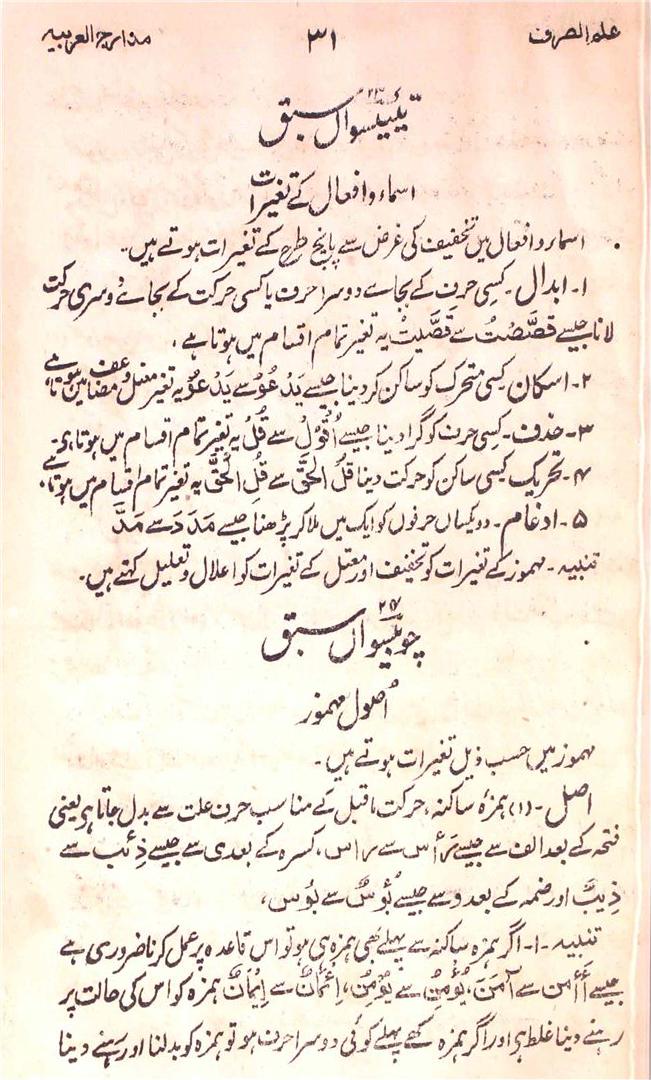 علم الصرف ۳۱ مدارج العربیہ
۲۳
تیئیسواں سبق
اسماء و افعال کے تغیرات
اسماء و افعال میں تخفیف کی غرض سے پانچ طرح کے تغیرات ہوتے ہیں۔
۱۔ ابدال۔ کسی حرف کے بجائے دوسرا حرف یا کسی حرکت کے بجائے دوسری حرکت
لانا جیسے قَصَّصْتُ سے قَصَّيْتُ یہ تغیر تمام اقسام میں ہوتا ہے،
۲۔ اسکان۔ کسی متحرک کو ساکن کر دینا جیسے یَدْعُوُ سے یَدْعُوْ یہ تغیر معتل و مضاعف میں ہوتا ہے،
۳۔ حذف۔ کسی حرف کو گرا دینا جیسے اُقْوُلْ سے قُلْ یہ تغیر تمام اقسام میں ہوتا ہی۔
۴۔ تحریک کسی ساکن کو حرکت دینا قُلْ الْحَقَّ سے قُلِ الْحَقَّ یہ تغیر تمام اقسام میں ہوتا ہے،
۵۔ ادغام۔ دو یکساں حرفوں کو ایک میں ملا کر پڑھنا جیسے مَدَدَ سے مَدَّ
تنبیہ۔ مہموز کے تغیرات کو تخفیف اور معتل کے تغیرات کو اعلال و تعلیل کہتے ہیں۔
چوبیسواں سبق
اُصول مہموز
مہموز میں حسب ذیل تغیرات ہوتے ہیں۔
اصل۔ (۱) ہمزہ ساکنہ، حرکت ماقبل کے مناسب حرف علت سے بدل جاتا ہی یعنی
فتحہ کے بعد الف سے جیسے رَأْس سے راس، کسرہ کے بعد ی سے جیسے ذِئْب سے
ذِیبٌ اور ضمہ کے بعد و سے جیسے بُؤْسٌ سے بُوْس،
تنبیہ۔ ۱۔ اگر ہمزہ ساکنہ سے پہلے بھی ہمزہ ہی ہو تو اس قاعدہ پر عمل کرنا ضروری ہے
جیسے أَأْمن سے آمَنَ، یُؤْمِنُ سے یُوْمِنُ، اِئْمَانٌ سے اِیْمَانٌ ہمزہ کو اس کی حالت پر
رہنے دینا غلط ہی اور اگر ہمزہ کے پہلے کوئی دوسرا حرف ہو تو ہمزہ کو بدلنا اور رہنے دینا